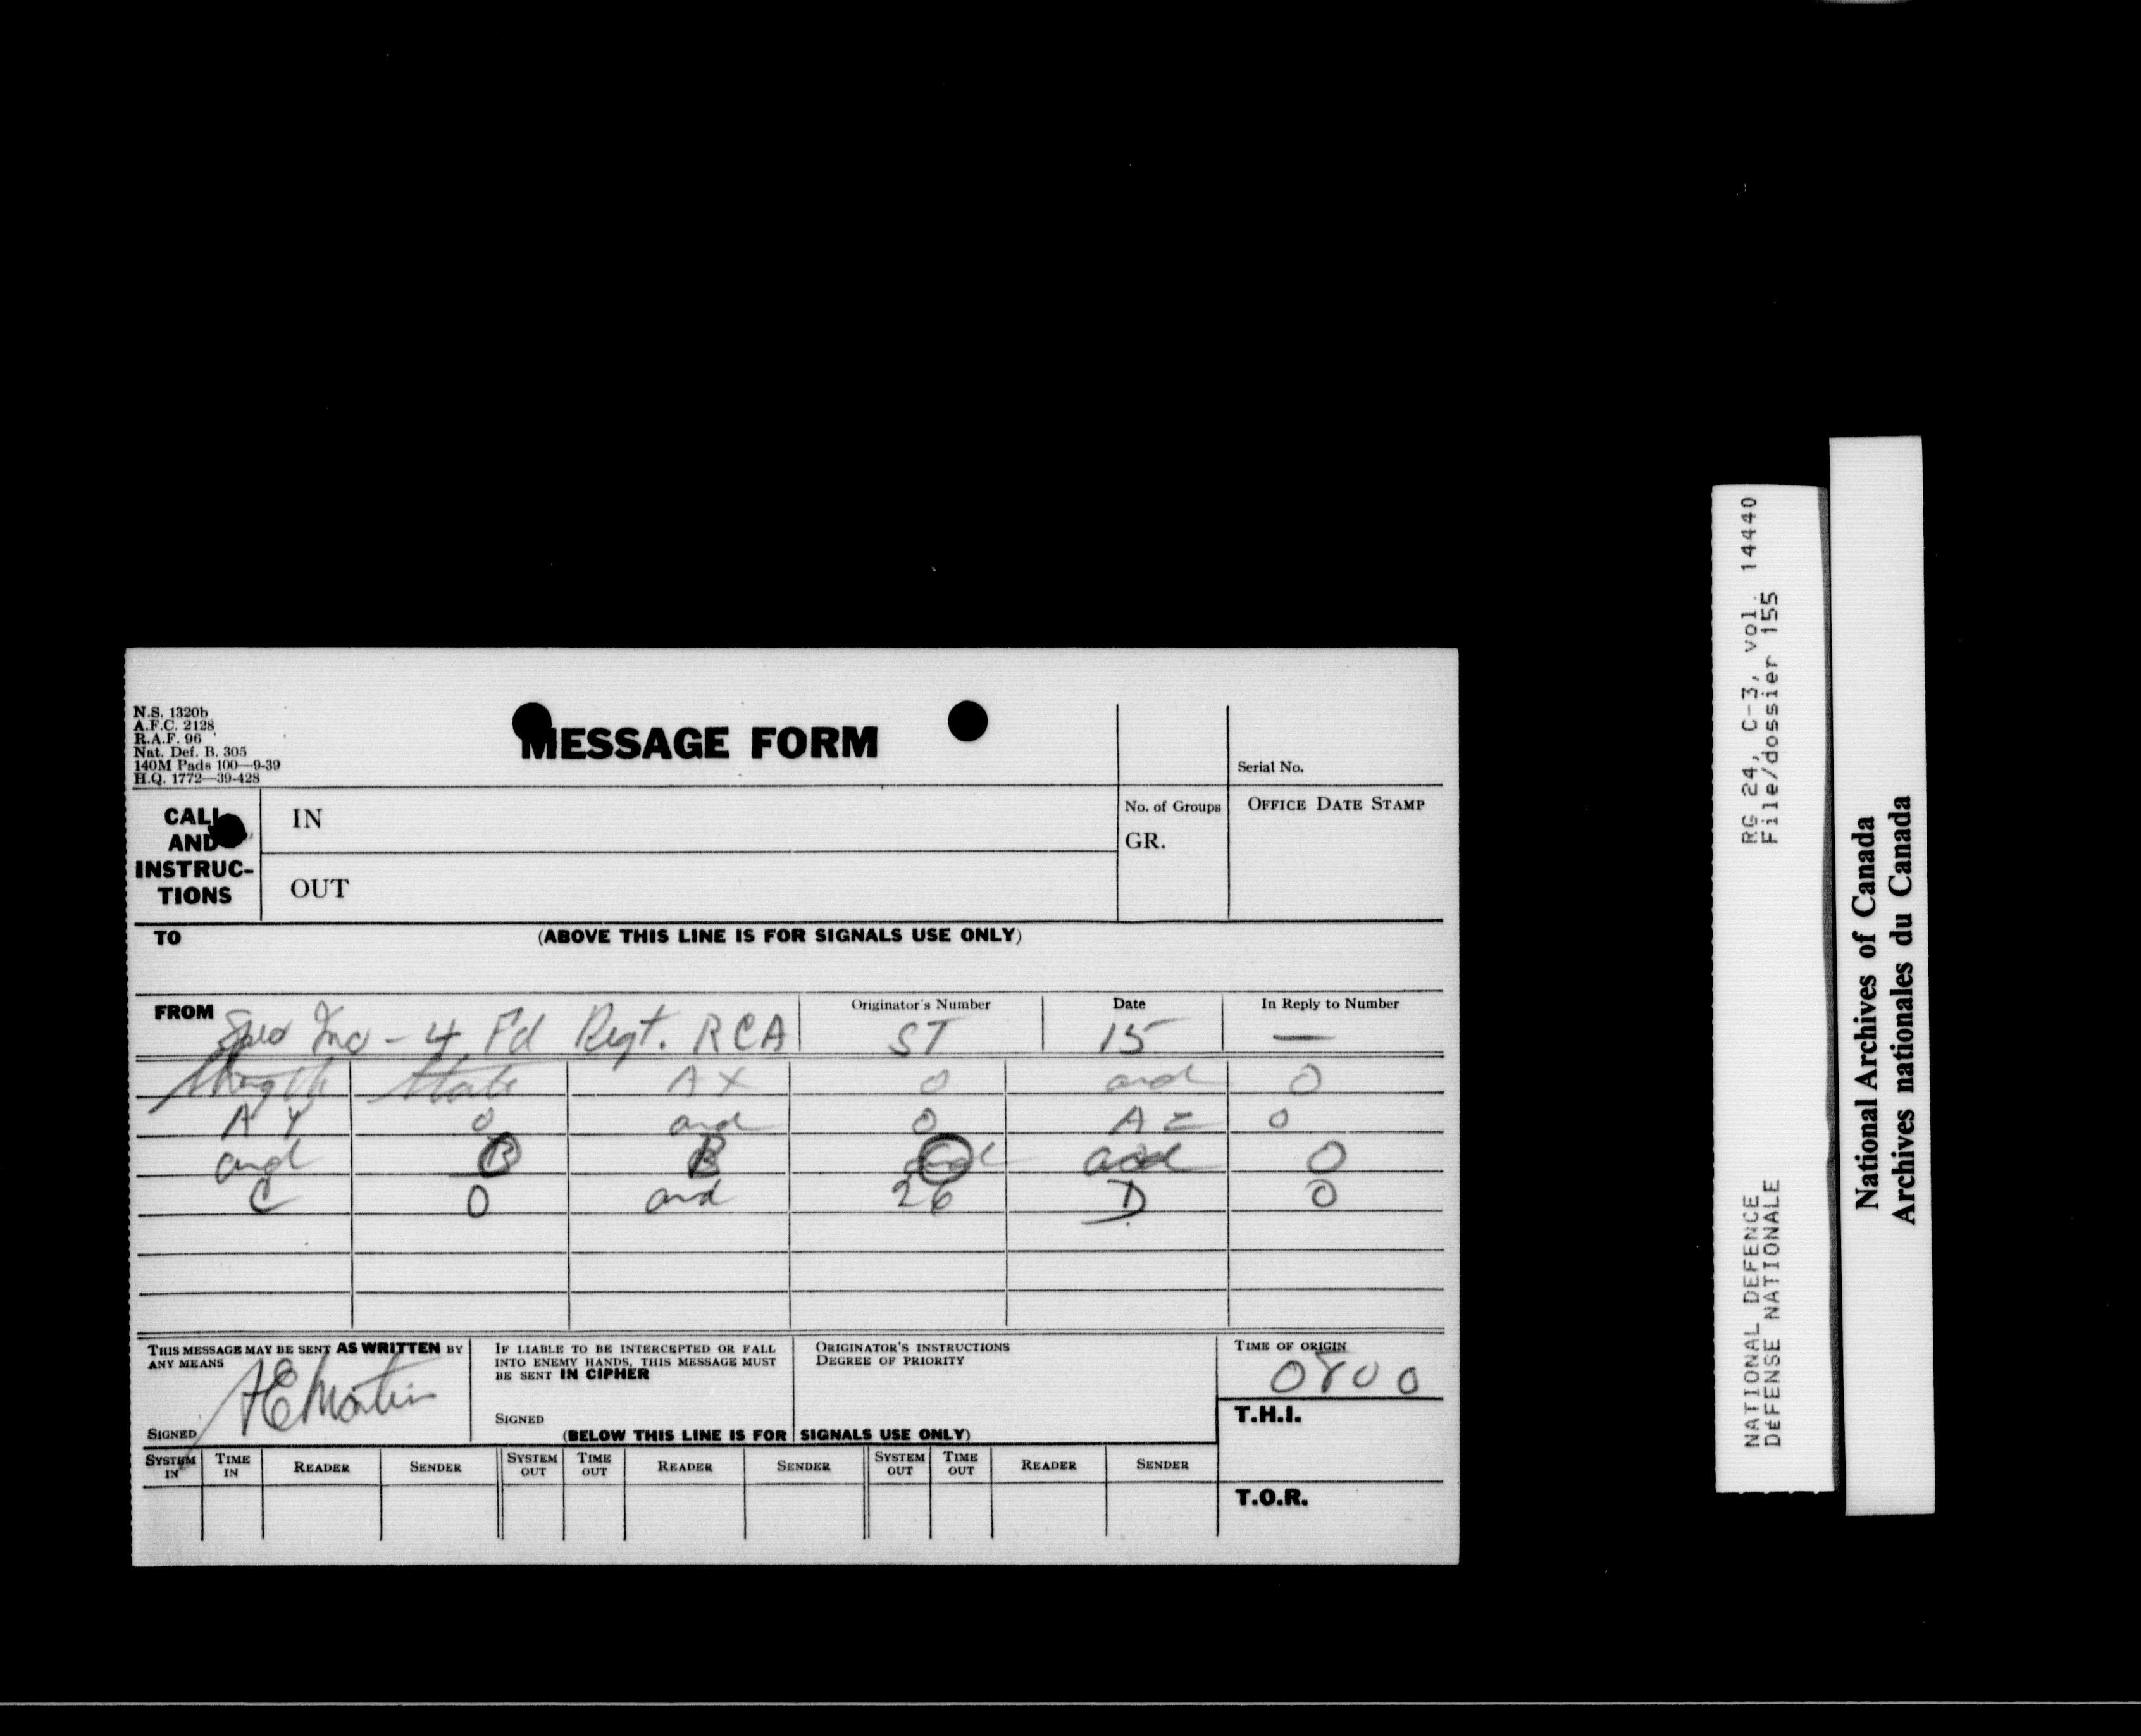 N.S. 1320b
A.F.C. 2128
R.A.F. 96
Nat. Def. B. 305
140M Pads 100—9-39
H.Q. 1772—39-428
MESSAGE FORM
Serial No.
CALL AND INSTRUC-TIONS
IN
OUT
No. of Groups
GR.
OFFICE DATE STAMP
TO
(ABOVE THIS LINE IS FOR SIGNALS USE ONLY)
FROM
Originator's Number
Date
In Reply to Number
- 4 Fd Regt. RCA ST 15 —
Strength State AX 0 and 0
AY 0 and 0 AZ 0
and B and 0
C 0 and 26 D 0
THIS MESSAGE MAY BE SENT AS WRITTEN BY
ANY MEANS
SIGNED
AEMartin
IF LIABLE TO BE INTERCEPTED OR FALL
INTO ENEMY HANDS, THIS MESSAGE MUST
BE SENT IN CIPHER
SIGNED
ORIGINATOR'S INSTRUCTIONS
DEGREE OF PRIORITY
TIME OF ORIGIN
0800
T.H.I.
(BELOW THIS LINE IS FOR SIGNALS USE ONLY)
SYSTEM IN TIME IN READER SENDER SYSTEM OUT TIME OUT READER SENDER SYSTEM OUT TIME OUT READER SENDER
T.O.R.
RG 24, C-3, vol. 14440
File/dossier 155
NATIONAL DEFENCE
DÉFENSE NATIONALE
National Archives of Canada
Archives nationales du Canada